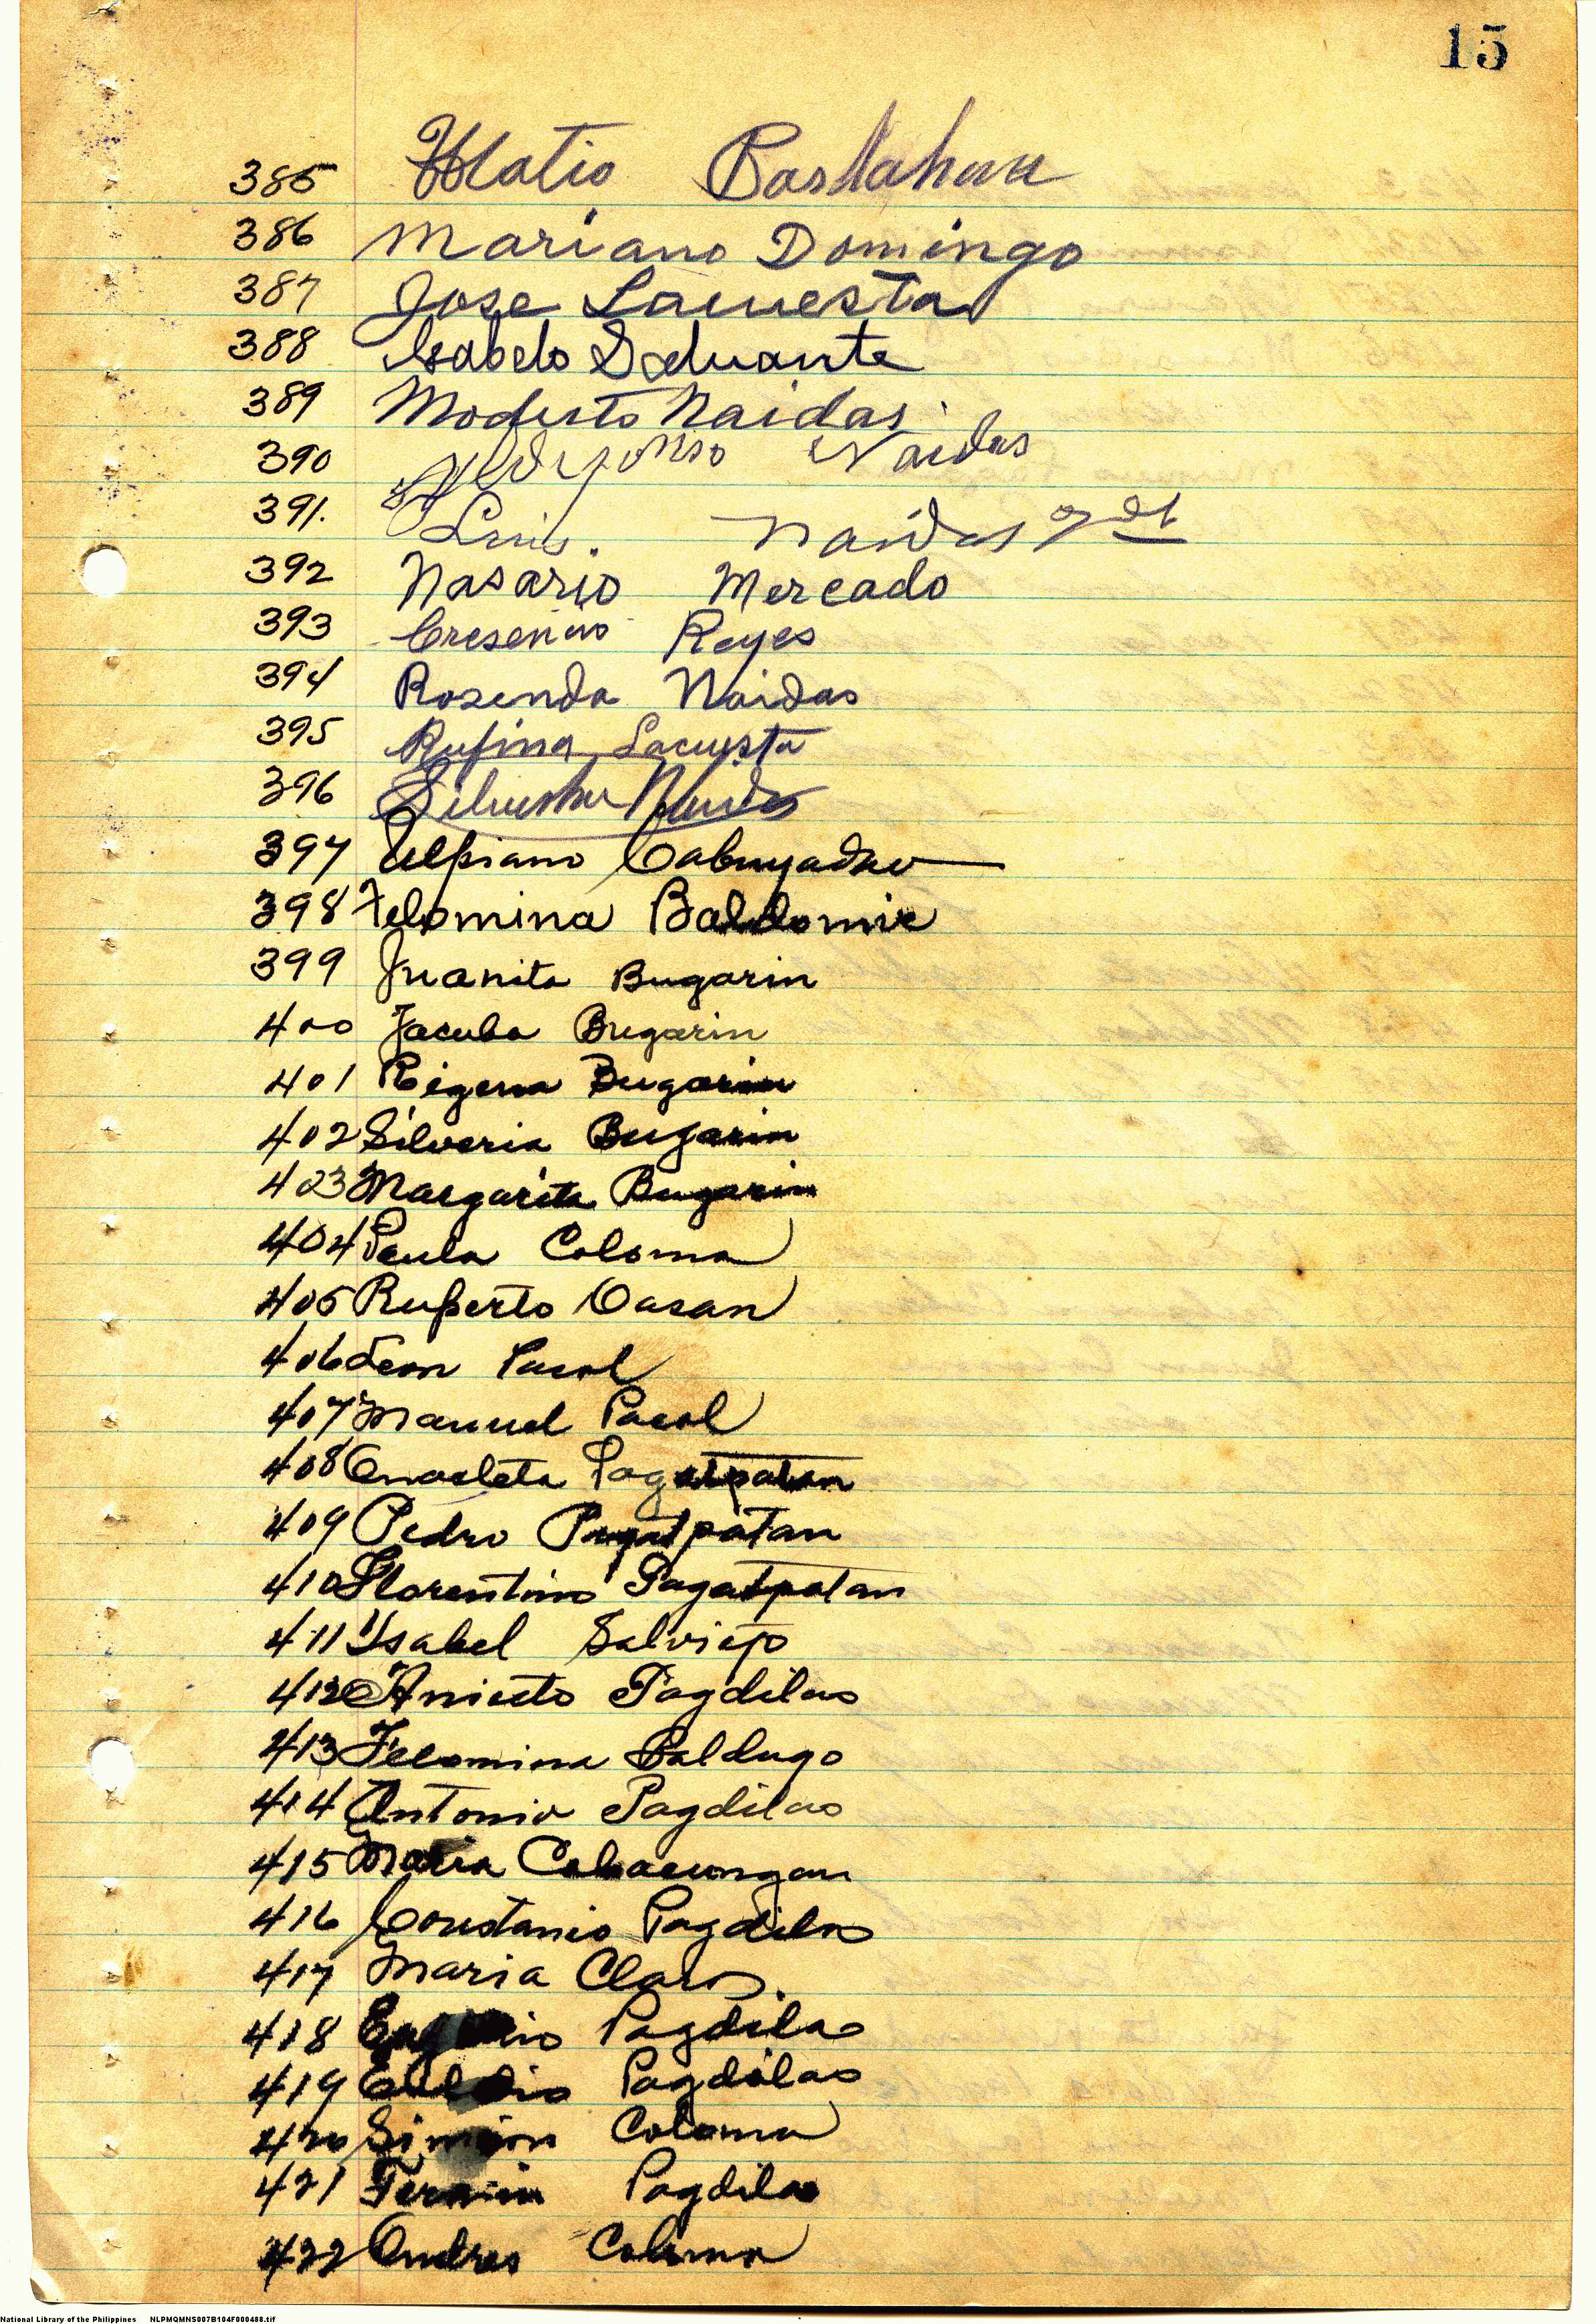 15
385
386 Mariano Domingo
387 Jose Lacuesta
388 Isabelo
389 Modesto Naidas
390 Ildefonso Naidas
391. Luis. Naidas
392 Nasario Mercado
393 Cresencio Reyes
394 Rosenda Naidas
395 Rufina Lacuesta
396 Silvestre Naidas
397 Ulpiano Cabuyadao
398 Felomina Baldomir
399 Juanita Bugarin
400 Jacuba Bugarin
401 Bugarin
402 Silveria Bugarin
403 Margarita Bugarin
404 Paula Coloma
405 Ruperto Oasan
406 Leon Pacol
407 Manuel Pacol
408 Anacleta Pagatpatan
409 Pedro Pagatpatan
410 Florentino Pagatpatan
411 Ysabel Salviejo
412 Aniceto Pagdilao
413 Felomina Baldugo
414 Antonio Pagdilao
415 Maria Cabacungan
416 Constanio Pagdilao
417 Maria Claro.
418 Pagdilao
419 Pagdilao
420 Simion Coloma
421 Fermin Pagdilao
422 Andres Coloma
National Library of the Philippines NLPMQMNS007B104F000488.tif